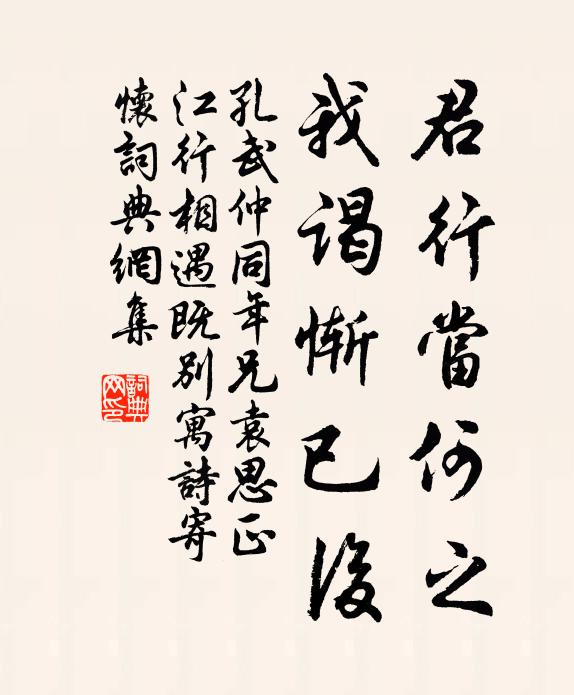 君行當何之
我謁慚已後
孔武仲同年兄袁思正
江行相遇既別寓詩寄
懷詞典網集
詞典網印